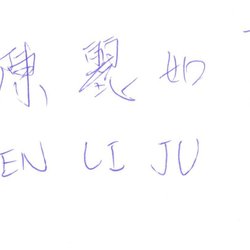 陳麗如
EN LI JU